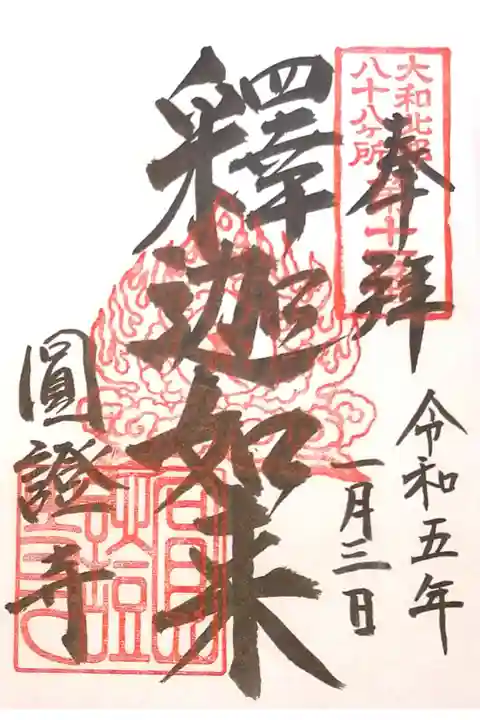 大和北部
八十八ヶ所
奉拝
令和五年
一月三日
釋迦如来
圓證寺